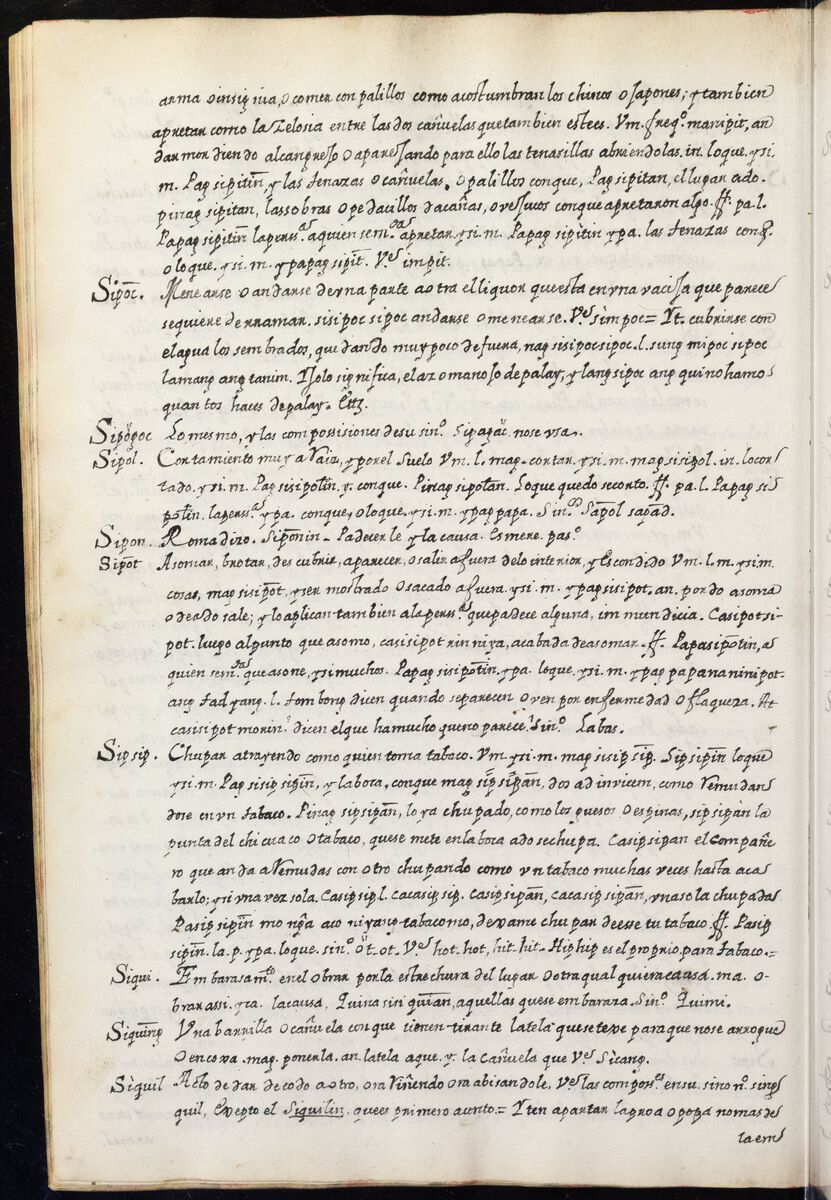 arma o insignia, o comer con palillos como acostumbran los chinos o Japones; y tambien
apretar como la Zelosia entre las dos cañuelas que tambien es tees. Vm. freqº. manipit, an
dar mordiendo al cangrejo o aparejando para ello las tenasillas abriendolas. in. loque. ysi.
m. Pag sipitin, y las tenazas o cañuelas, o palillos conque, Pag sipitan, el lugar ado.
pinag sipitan, las sobras o pedacillos de cañas, o vejucos conque apretaron algo. ff. pa. l.
Papag sipitin la perssª aquien apretar, ysi. m. Papag sipitin y pa. las tenazas con q.
o loque. ysi. m. ypapag sipit. Vᵉ impit.
Sipoc. Menearse o andarse de vna parte a otra el liquor que esta en vna vacija que parece
se quiere derramar. sisipoc sipoc andarse o menearse. Vᵉ simpoc = Yt. cubrirse con
el agua los sembrados, quedando muy poco de fuera, nag sisipocsipoc. l. sung mipoc sipoc
lamang ang tanim. Y solo significa, el azo manojo de palay, ylang sipoc ang quinohamo
quantos haces de palay. Ettz.
Sipocpoc Lo mesmo, y las compossisiones de su sinº. Sipagac. nose vsa.
Sipol. Cortamiento muy a Raiz, y por el suelo Vm. l. mag. cortar, ysi. m. mag sisipol. in. lo cor
tado. ysi. m. Pag sisipolin. y. conque. Pinag sipolan. Loque quedo se corto. ff. pa. l. Papag si
polin. la perssª. y pa. conque, o loque, ysi. m. ypag papa. Sinº. Sapol sapad.
Sipon. Romadizo. Siponin. Padecerle y la causa. Es mere. pasº.
Sipot Asomar, brotar, descubrir, aparecer, o salir afuera de lo interior, y Escondido Vm. l. m. ysi m.
cosas, mag sisipot, y ser mostrado o sacado afuera. ysi. m. ypag sisipot. an. por do asoma
o deado sale; y lo aplican tambien ala perssª que padece alguna, immundicia. Casipotsi-
pot. luego al punto que asomo, casisipot rin niya, acabada de asomar. ff. Papasipotin, a
quien que asome, ysi muchos. Papag sisipotin, y pa. loque. ysi. m. ypag papananinipot.
ang tadyang. l. tombong dicen quando se parecen o ven por enfermedad o flaqueza. At
casisipot morin? dicen el que ha mucho que no parece? Sinº. Labas.
Sipsip. Chupar atrayendo como quien toma tabaco. Vm. ysi. m. mag sisip sip. Sipsipin loque
ysi. m. Pag sisip sipin, y la boca, conque mag sip sipan, dos ad invicem, como Remudan
dose en vn tabaco. Pinag sipsipan, lo ya chupado, como los guesos o espinas, sipsipan la
punta del chicuaco o tabaco, que se mete en la boca ado se chupa. Casip sipan el compañe
ro que anda a Remudas con otro chupando como vn tabaco muchas veces hasta aca
barlo; ysi vna vez sola. Casip sip l. cacasip sip. Casip sipan, cacasip sipan, vna sola chupada
Pasip sipin mo nga aco niyang tabaco mo, dexame chupar de esse tu tabaco ff. Pasip
sipin. la. p. ypa. loque. sinº. ot. ot. Vᵉ hot. hot, hit. hit. Hip hip es el proprio para tabaco.=
Siqui. Embarasamtº. en el obrar por la estrechura del lugar o otra qualquiera causa. ma. o-
brar assi. yca. la causa, Quina siri quian, aquellas que se embaraza. Sinº. Quimi.
Siquing Vna barrilla o cañuela con que tienen tirante la tela que se texe para que nose arrogue
o encoxa. mag. ponerla. an. la tela aque. y. la cañuela que Vᵉ Sicang.
Siquil Acto de dar de codo a otro, ora Riñendo ora abisandole, Vᵉ las compossᵉˢ en su. sinoº. sing
quil, Exepto el Siquilin, que es primero acento.= Yten apartar la proa o popa no mas de
la em